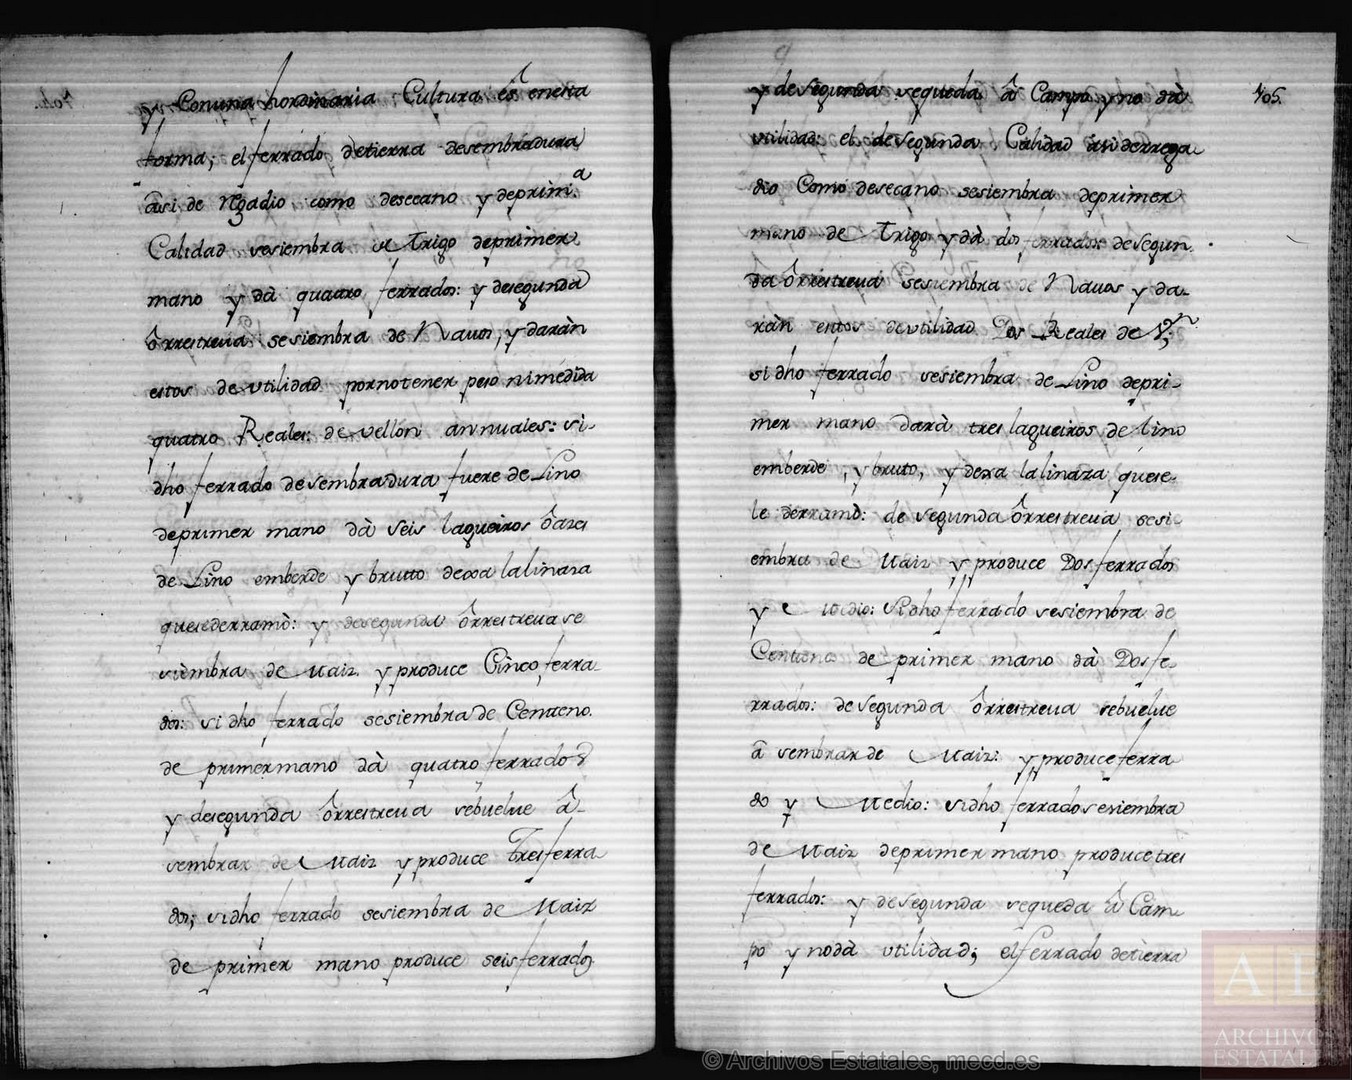 y Comuna hordinaria Cultura es enesta
forma; el ferrado detierra desembradura
asi de rregadio como desecano y deprim.a
Calidad sesiembra de Trigo deprimer
mano y dà quatro ferrados: y desegunda
ôrrestreva sesiembra de Navos, y daràn
estos de vtilidad pornotener peso nimedida
quatro Reales de vellon annuales: si-
dho ferrado desembradura fuere de Lino
deprimer mano dà seis lagueiros ôazes
de Lino emberde y brutto dexa lalinaza
queseederramò: y desegunda ôrrestreva se
siembra de Maiz y produce Cinco ferra
dos: si dho ferrado sesiembra de Centeno
de primermano dà quatro ferrados
y desegunda ôrrestreva sebuelve â-
sembrar de Maiz y produce Tres ferra
dos; sidho ferrado sesiembra de Maiz
de primer mano produce seis ferrados
705.
y de Segunda sequeda â Campo y no dà
vtilidad: el de segunda Calidad asi derrega
dio Como desecano sesiembra deprimer
mano de Trigo y dà dos ferrados de Segun
da ôrrestreva Sesiembra de Navos y da-
ràn estos de utilidad Dos Reales de V.on;
si dho ferrado sesiembra de Lino depri-
mer mano darà tres lagueiros de Lino
emberde, y bruto, y dexa lalinaza quese-
le derramò: de segunda ôrrestreva sesi
embra de Maiz y produce Dos ferrados
y Medio: Si dho ferrado sesiembra de
Centeno de primer mano dà Dos fe-
rrados: de segunda ôrrestreva sebuelve
â sembrar de Maiz: y produce ferra
do y Medio: sidho ferrado sesiembra
de Maiz deprimer mano produce tres
ferrados: y de segunda sequeda â Cam-
po y nodà utilidad; el ferrado detierra
© Archivos Estatales, mecd.es
AE
ARCHIVOS
ESTATALES